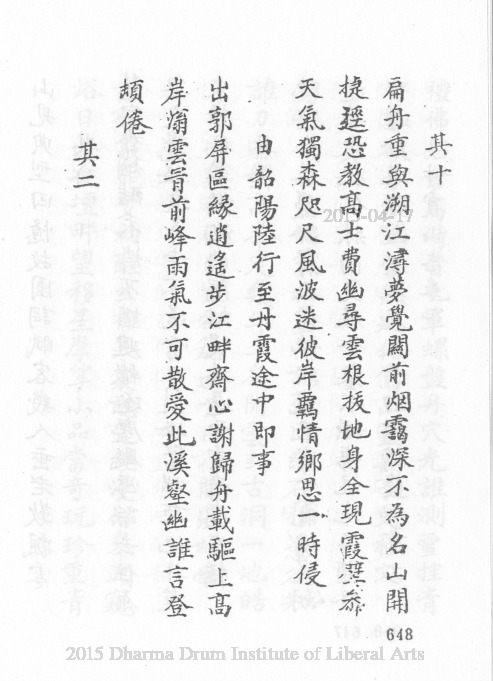 其十
扁舟重與溯江潯夢覺闗前烟靄深不為名山開
捷逕恐教高士費幽尋雲根拔地身全現霞壁叅
天氣獨森咫尺風波迷彼岸羈情鄉思一時侵
由韶陽陸行至丹霞途中即事
出郭屏區緣逍遙步江畔齋心謝歸舟載驅上高
岸滃雲冐前峰雨氣不可散愛此溪壑幽誰言登
頓倦
其二
648
2015-04-17
2015 Dharma Drum Institute of Liberal Arts